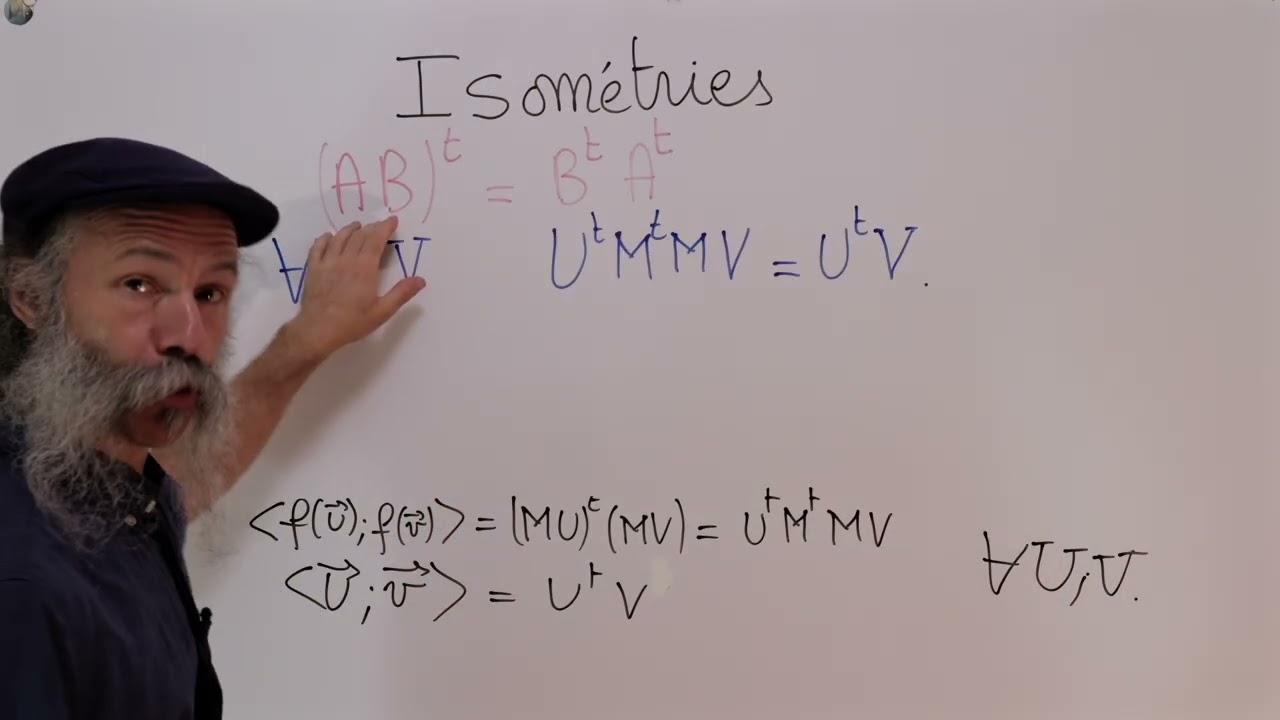 Isométries
(AB)ᵗ = Bᵗ Aᵗ
∀ V UᵗMᵗMV = UᵗV.
<f(u⃗);f(v⃗)> = (MU)ᵗ(MV) = UᵗMᵗMV
∀U;V.
<u⃗;v⃗> = UᵗV